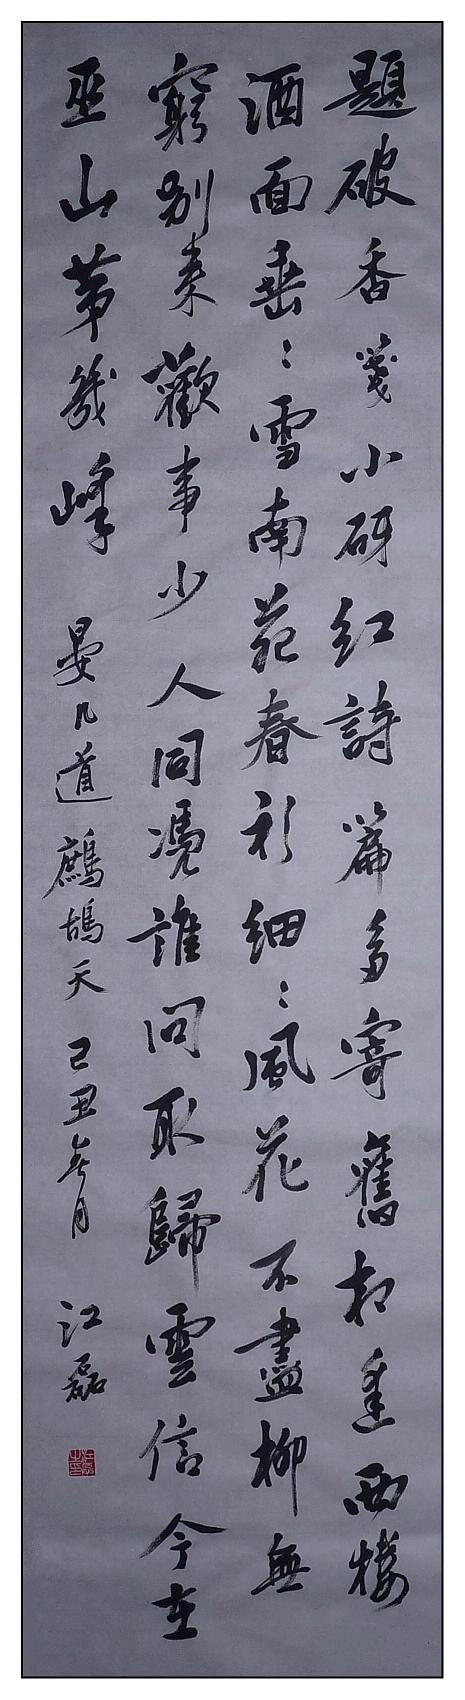 題破香箋小砑紅詩篇多寄舊相逢西樓
酒面垂〻雪南苑春衫細〻風花不盡柳無
窮別來歡事少人同憑誰問取歸雲信今在
巫山第幾峰 晏几道鷓鴣天 己丑月 江磊